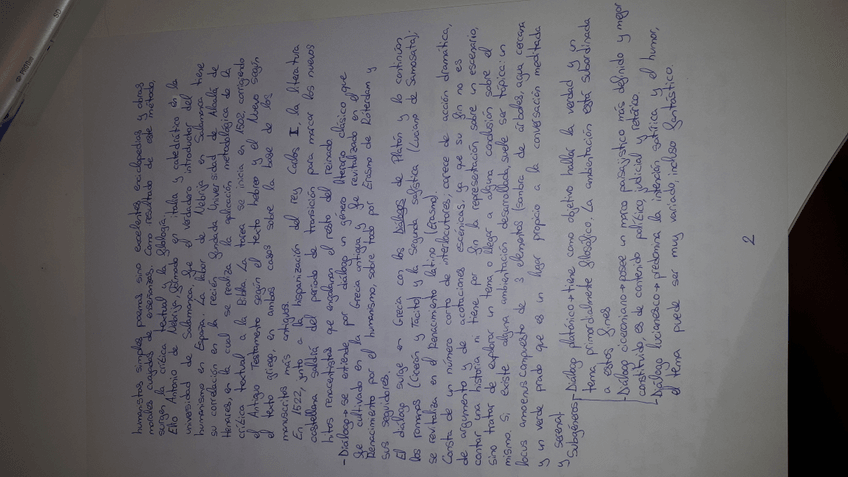 humanistas simples poemas sino excelentes enciclopedias y obras
morales cargadas de enseñanzas. Como resultado de este método,
surgen la crítica textual y la filología.
Elio Antonio de Nebrija, formado en italia y catedrático en la
universidad de Salamanca, fue el verdadero introductor del
humanismo en España. La labor de Nebrija en Salamanca tiene
su correlación en la recién fundada Universidad de Alcalá de
Henares, en la cual se realiza la aplicación metodológica de la
crítica textual a la Biblia. La tarea se inicia en 1502, corrigiendo
el Antiguo Testamento según el texto hebreo y el Nuevo según
el texto griego, en ambos casos sobre la base de los
manuscritos más antiguos.
En 1522, junto a la hispanización del rey Carlos I, la literatura
castellana saldrá del periodo de transición para marcar los nuevos
hitos renacentistas que engloban el resto del reinado
- Diálogo → se entiende por diálogo un género literario clásico, que
fue cultivado en la Grecia antigua y fue revitalizado en el
Renacimiento por el humanismo, sobre todo por Erasmo de Róterdam y
sus seguidores.
El diálogo surge en Grecia con los Diálogos de Platón y lo continúan
los romanos (Cicerón y Tácito) y la Segunda sofística (Luciano de Samosata);
se revitaliza en el Renacimiento latino (Erasmo).
Consta de un número corto de interlocutores, carece de acción dramática,
de argumento y de acotaciones escénicas, ya que su fin no es
contar una historia ni tiene por fin la representación sobre un escenario,
sino tratar de exponer un tema o llegar a alguna conclusión sobre el
mismo. Si existe alguna ambientación desarrollada, suele ser típica: un
locus amoenus compuesto de 3 elementos (sombra de árboles, agua cercana
y un verde prado que es un lugar propicio a la conversación meditada
y serena)
Subgéneros - Diálogo platónico → tiene como objetivo hallar la verdad y un
tema primordialmente filosófico. La ambientación está subordinada
a esos fines
- Diálogo ciceroniano → posee un marco paisajístico más definido y mejor
constituido, es de contenido político, judicial y retórico.
- Diálogo lucianesco → predomina la intención satírica y el humor,
el tema puede ser muy variado, incluso fantástico.
2